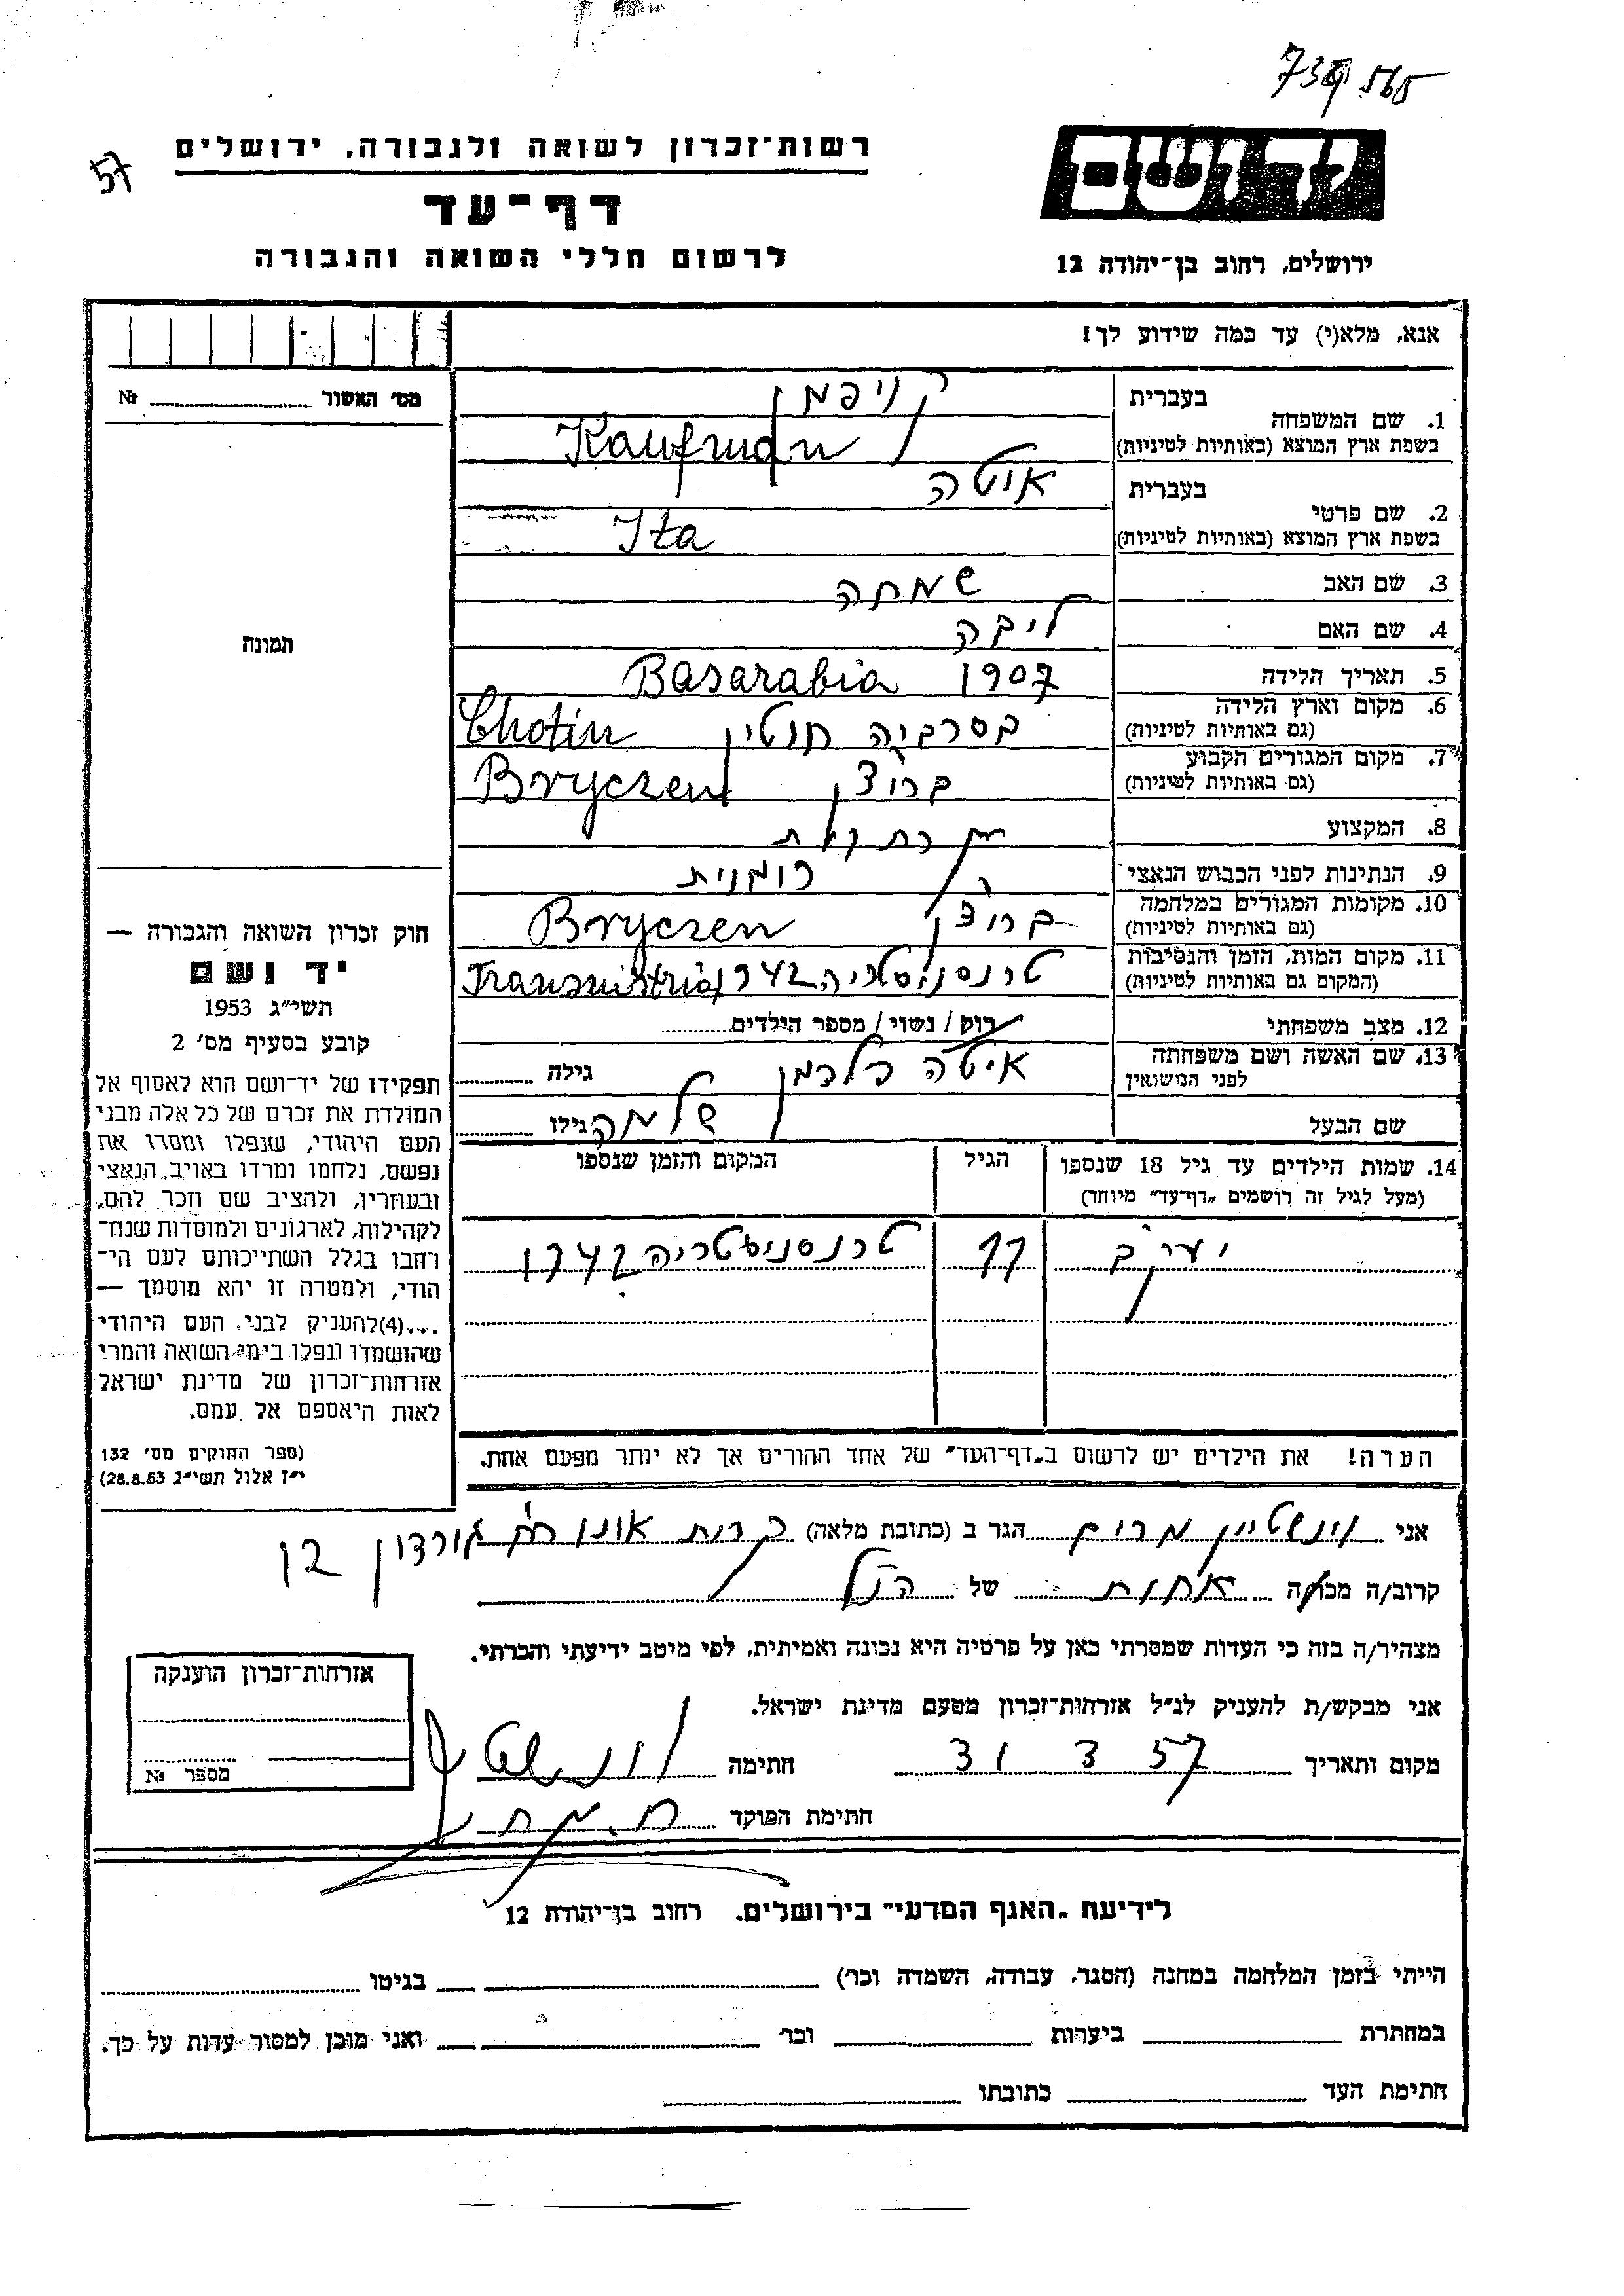 739 565
57
רשות־זכרון לשואה ולגבורה, ירושלים
דף־עד
לרשום חללי השואה והגבורה
יד ושם
ירושלים, רחוב בן־יהודה 12
אנא, מלא(י) עד כמה שידוע לך!
מס׳ האשור № 
תמונה
1. שם המשפחה
בעברית קויפמן
בשפת ארץ המוצא (באותיות לטיניות) Kaufman
2. שם פרטי
בעברית איטה
בשפת ארץ המוצא (באותיות לטיניות) Ita
3. שם האב שמחה
4. שם האם ליבה
5. תאריך הלידה 1907 Basarabia
6. מקום וארץ הלידה
(גם באותיות לטיניות) בסרביה חוטין Chotin
7. מקום המגורים הקבוע
(גם באותיות לטיניות) בריצ'ן Bryczen
8. המקצוע
9. הנתינות לפני הכבוש הנאצי רומנית
10. מקומות המגורים במלחמה
(גם באותיות לטיניות) בריצ'ן Bryczen
11. מקום המות, הזמן והנסיבות
(המקום גם באותיות לטיניות) טרנסניסטריה 1942 Transnistria
12. מצב משפחתי רווק / נשוי / מספר הילדים
13. שם האשה ושם משפחתה
לפני הנשואין איטה גילה
שם הבעל שלמה גילו
14. שמות הילדים עד גיל 18 שנספו
(מעל לגיל זה רושמים „דף־עד” מיוחד)
הגיל
המקום והזמן שנספו
יעקב 11 טרנסניסטריה 1942
הערה! את הילדים יש לרשום ב„דף־העד” של אחד ההורים אך לא יותר מפעם אחת.
חוק זכרון השואה והגבורה —
יד ושם
תשי״ג 1953
קובע בסעיף מס׳ 2
תפקידו של יד־ושם הוא לאסוף אל
המולדת את זכרם של כל אלה מבני
העם היהודי, שנפלו ומסרו את
נפשם, נלחמו ומרדו באויב הנאצי
ובעוזריו, ולהציב שם וזכר להם,
לקהילות, לארגונים ולמוסדות שנח־
רבו בגלל השתייכותם לעם הי־
הודי, ולמטרה זו יהא מוסמך —
...(4)להעניק לבני העם היהודי
שהושמדו ונפלו בימי השואה והמרי
אזרחות־זכרון של מדינת ישראל
לאות היאספם אל עמם.
(ספר החוקים מס׳ 132
י״ז אלול תשי״ג 28.8.53)
אני וינשטיין מרים הגר ב (כתובת מלאה) קרית אונו רח' גורדון
קרוב/ה מכר/ה אחות של הנ"ל
מצהיר/ה בזה כי העדות שמסרתי כאן על פרטיה היא נכונה ואמיתית, לפי מיטב ידיעתי והכרתי.
אני מבקש/ת להעניק לנ״ל אזרחות־זכרון מטעם מדינת ישראל.
מקום ותאריך 31 3 57 חתימה
חתימת הפוקד
אזרחות־זכרון הוענקה
מספר №
לידיעת „האגף המדעי” בירושלים, רחוב בן־יהודה 12
הייתי בזמן המלחמה במחנה (הסגר, עבודה, השמדה וכו׳) בגיטו
במחתרת ביערות וכו׳ ואני מוכן למסור עדות על כך.
חתימת העד כתובתו